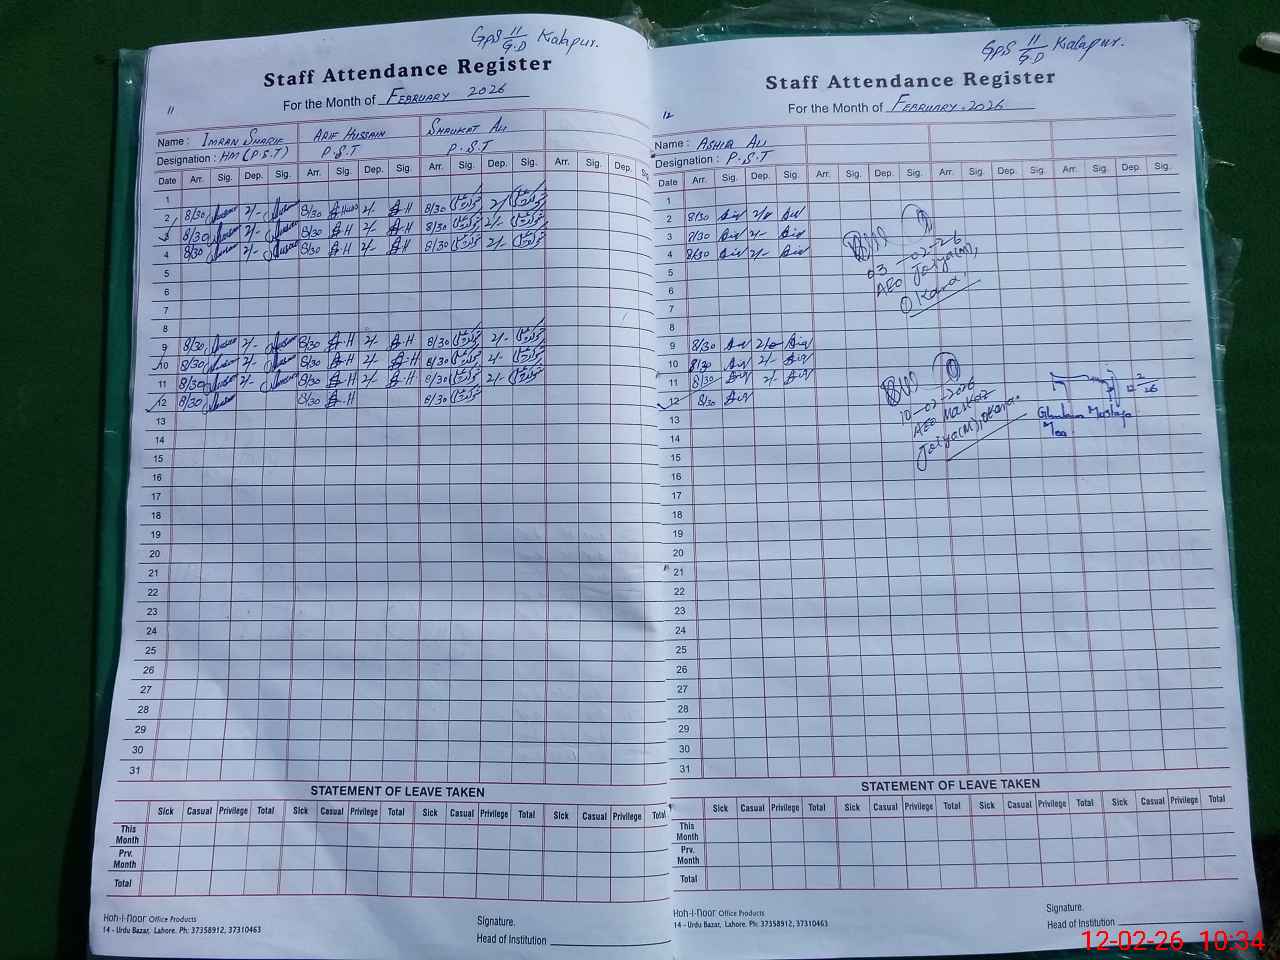 GPS 11/G.D Kalapur.
Staff Attendance Register
For the Month of FEBRUARY 2026
11
Name : IMRAN SHARIF ARIF HUSSAIN SHAUKAT ALI
Designation : HM (P.S.T) P.S.T P.S.T
Date Arr. Sig. Dep. Sig. Arr. Sig. Dep. Sig. Arr. Sig. Dep. Sig. Arr. Sig. Dep. Sig.
1
2 8/30 2/- 8/30 2/- A·H 8/30 2/
3 8/30 2/- 8/30 A·H 2/- A·H 8/30 2/-
4 8/30 2/- 8/30 A·H 2/- A·H 8/30 2/-
5
6
7
8
9 8/30 2/- 8/30 A·H 2/- A·H 8/30 2/-
10 8/30 2/- 8/30 A·H 2/- A·H 8/30 2/-
11 8/30 2/- 8/30 A·H 2/- A·H 8/30 2/-
12 8/30 8/30 A·H 8/30
13
14
15
16
17
18
19
20
21
22
23
24
25
26
27
28
29
30
31
STATEMENT OF LEAVE TAKEN
Sick Casual Privilege Total Sick Casual Privilege Total Sick Casual Privilege Total Sick Casual Privilege Total
This Month
Prv. Month
Total
Hoh-i-Noor Office Products
14 - Urdu Bazar, Lahore. Ph: 37358912, 37310463
Signature.
Head of Institution
GPS 11/G.D Kalapur.
Staff Attendance Register
For the Month of FEBRUARY. 2026
12
Name : ASHIQ ALI
Designation : P.S.T
Date Arr. Sig. Dep. Sig. Arr. Sig. Dep. Sig. Arr. Sig. Dep. Sig. Arr. Sig. Dep. Sig.
1
2 8/30
3 8/30 2/-
4 8/30 2/-
5
6
7
8
9 8/30
10 8/30 2/-
11 8/30 2/-
12 8/30
13
14
15
16
17
18
19
20
21
22
23
24
25
26
27
28
29
30
31
03-02-26
AEO Jaiya(M),
Okara.
10-02-2026
AEO Markaz
Jaiya(M), Okara.
12-2-26
Ghulam Mustafa
Mea
STATEMENT OF LEAVE TAKEN
Sick Casual Privilege Total Sick Casual Privilege Total Sick Casual Privilege Total Sick Casual Privilege Total
This Month
Prv. Month
Total
Hoh-i-Noor Office Products
14 - Urdu Bazar, Lahore. Ph: 37358912, 37310463
Signature.
Head of Institution
12-02-26 10:34